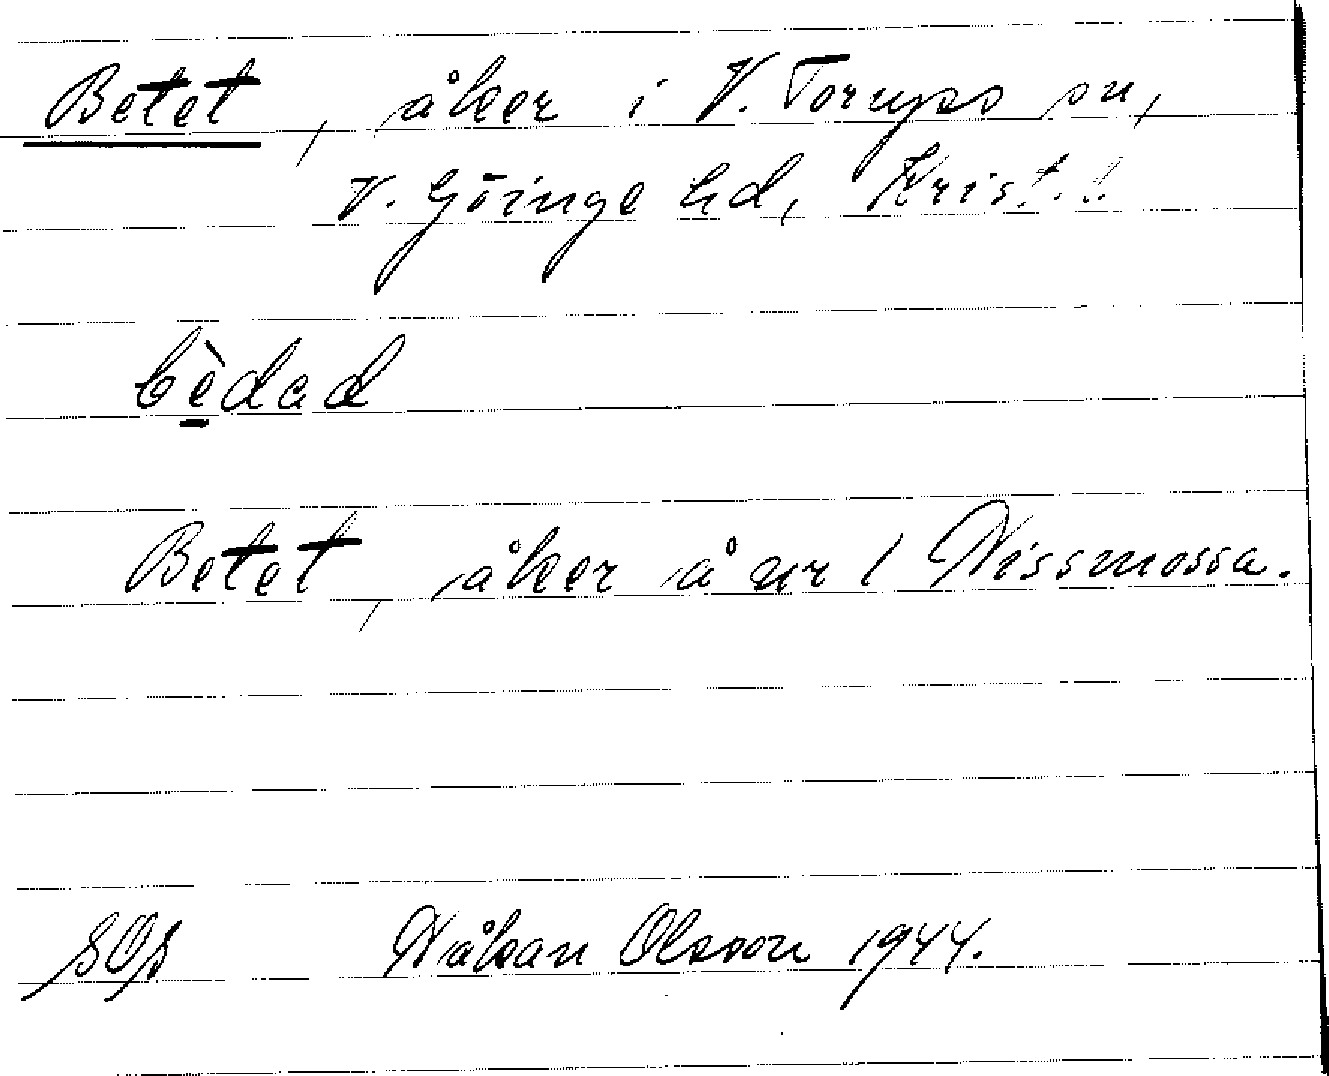 Betet, åker i V. Torups sn,
V. Göinge hd, Krist. l.
bèdad
Betet, åker å nr 1 Nissmossa.
Håkan Olsson 1944.